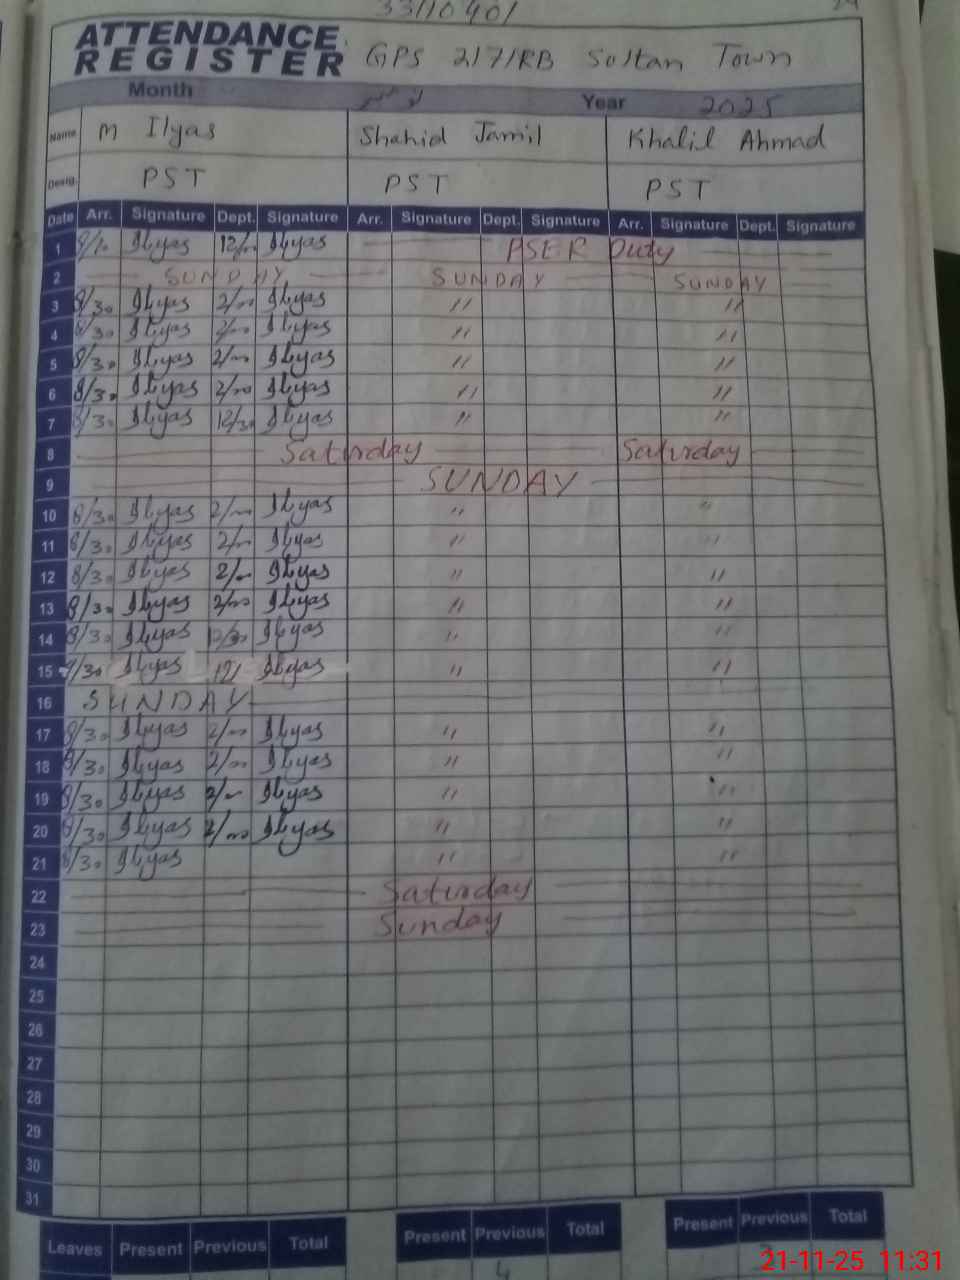 33110401
ATTENDANCE
REGISTER
GPS 217/RB Sultan Town
Month نومبر Year 2025
Name M Ilyas Shahid Jamil Khalil Ahmad
Desig. PST PST PST
Date Arr. Signature Dept. Signature Arr. Signature Dept. Signature Arr. Signature Dept. Signature
1 Ilyas Ilyas PSER Duty
2 SUNDAY SUNDAY SUNDAY
3 8/30 Ilyas 2/00 Ilyas " "
4 8/30 Ilyas 2/00 Ilyas " "
5 8/30 Ilyas 2/00 Ilyas " "
6 8/30 Ilyas 2/00 Ilyas " "
7 8/30 Ilyas 12/30 Ilyas " "
8 Saturday Saturday
9 SUNDAY
10 8/30 Ilyas 2/00 Ilyas " "
11 8/30 Ilyas 2/00 Ilyas " "
12 8/30 Ilyas 2/00 Ilyas " "
13 8/30 Ilyas 2/00 Ilyas " "
14 8/30 Ilyas 12/30 Ilyas " "
15 Ilyas Ilyas " "
16 SUNDAY
17 8/30 Ilyas 2/00 Ilyas " "
18 8/30 Ilyas 2/00 Ilyas " "
19 8/30 Ilyas 2/00 Ilyas " "
20 8/30 Ilyas 2/00 Ilyas " "
21 8/30 Ilyas " "
22 Saturday
23 Sunday
24
25
26
27
28
29
30
31
Leaves Present Previous Total Present Previous Total Present Previous Total
4
21-11-25 11:31